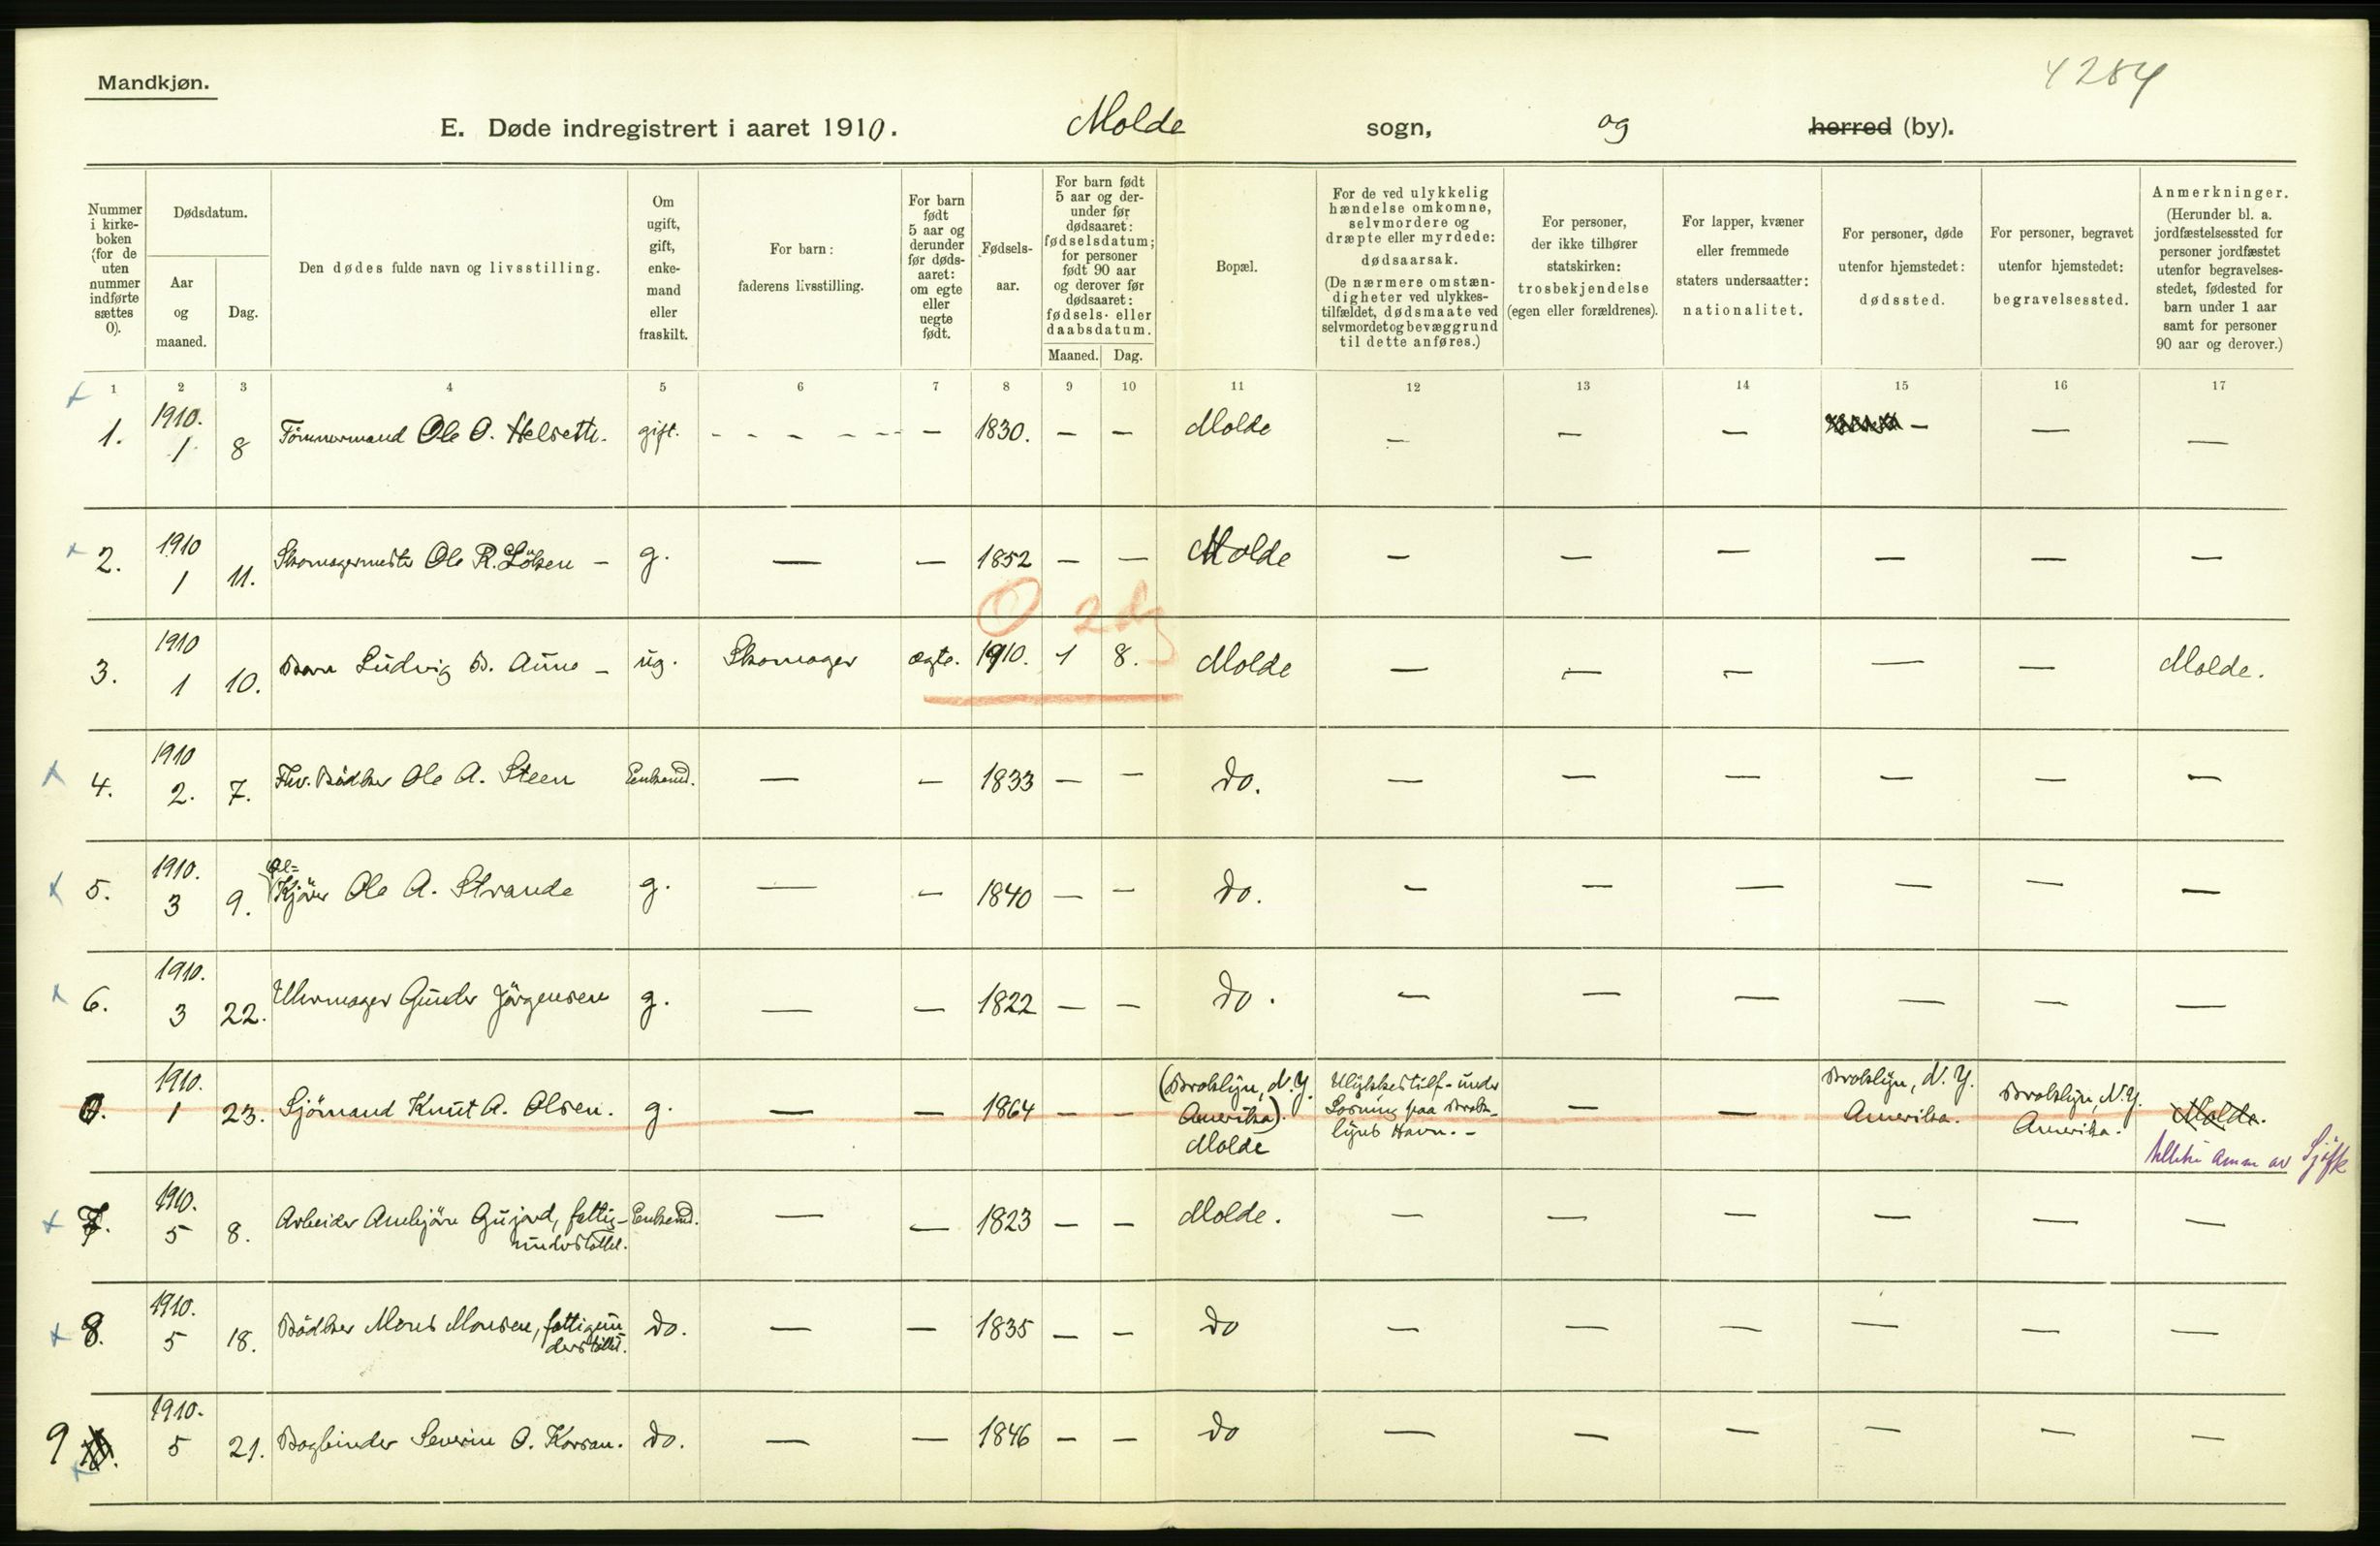 Mandkjøn.
4284
E. Døde indregistrert i aaret 1910. Molde sogn, og herred (by).
Nummer i kirke-boken (for de uten nummer indførte sættes 0).
Dødsdatum.
Aar og maaned.
Dag.
Den dødes fulde navn og livsstilling.
Om ugift, gift, enke-mand eller fraskilt.
For barn: faderens livsstilling.
For barn født 5 aar og derunder før døds-aaret: om egte eller uegte født.
Fødsels-aar.
For barn født 5 aar og der-under før dødsaaret: fødselsdatum; for personer født 90 aar og derover før dødsaaret: fødsels- eller daabsdatum.
Maaned. Dag.
Bopæl.
For de ved ulykkelig hændelse omkomne, selvmordere og dræpte eller myrdede: dødsaarsak.
(De nærmere omstæn-digheter ved ulykkes-tilfældet, dødsmaate ved selvmordet og bevæggrund til dette anføres.)
For personer, der ikke tilhører statskirken: trosbekjendelse (egen eller forældrenes).
For lapper, kvæner eller fremmede staters undersaatter: nationalitet.
For personer, døde utenfor hjemstedet: dødssted.
For personer, begravet utenfor hjemstedet: begravelsessted.
Anmerkninger.
(Herunder bl. a. jordfæstelsessted for personer jordfæstet utenfor begravelses-stedet, fødested for barn under 1 aar samt for personer 90 aar og derover.)
1 2 3 4 5 6 7 8 9 10 11 12 13 14 15 16 17
1. 1910. 1 8 Tömmermand Ole O. Helsette. gift. - - - - - - - 1830. — — Molde — — — — — —
2. 1910 1 11. Skomagermester Ole R. Löken — g. — — 1852 — — Molde — — — — — —
0 2 dg
3. 1910 1 10. Barn Ludvig B. Aune — ug. Skomager ægte. 1910. 1 8. Molde — — — — — Molde.
4. 1910 2. 7. Fhv. Bödker Ole A. Steen Enkemd. — — 1833 — — do. — — — — — —
5. 1910. 3 9. Öl-Kjörer Ole A. Strande g. — — 1840 — — do. — — — — — —
6. 1910. 3 22. Uhrmager Gunder Jörgensen g. — — 1822 — — do. — — — — — —
0. 1910. 1 23. Sjömand Knut A. Olsen. g. — — 1864 — — (Broklyn, N.Y. Amerika). Molde Ulykkestilf. under Losning paa Brok-lyns Havn. — — — Broklyn, N.Y. Amerika. Broklyn, N.Y. Amerika. Molde.
av Sjöfk
7. 1910. 5 8. Arbeider Anbjörn Gujord, fattig-understöttet. Enkemd. — — 1823 — — Molde. — — — — — —
8. 1910. 5 18. Bödker Mons Monsen, fattigun-derstöttet. do. — — 1835 — — do — — — — — —
9 1910. 5 21. Bogbinder Severin O. Korsan. do. — — 1846 — — do — — — — — —